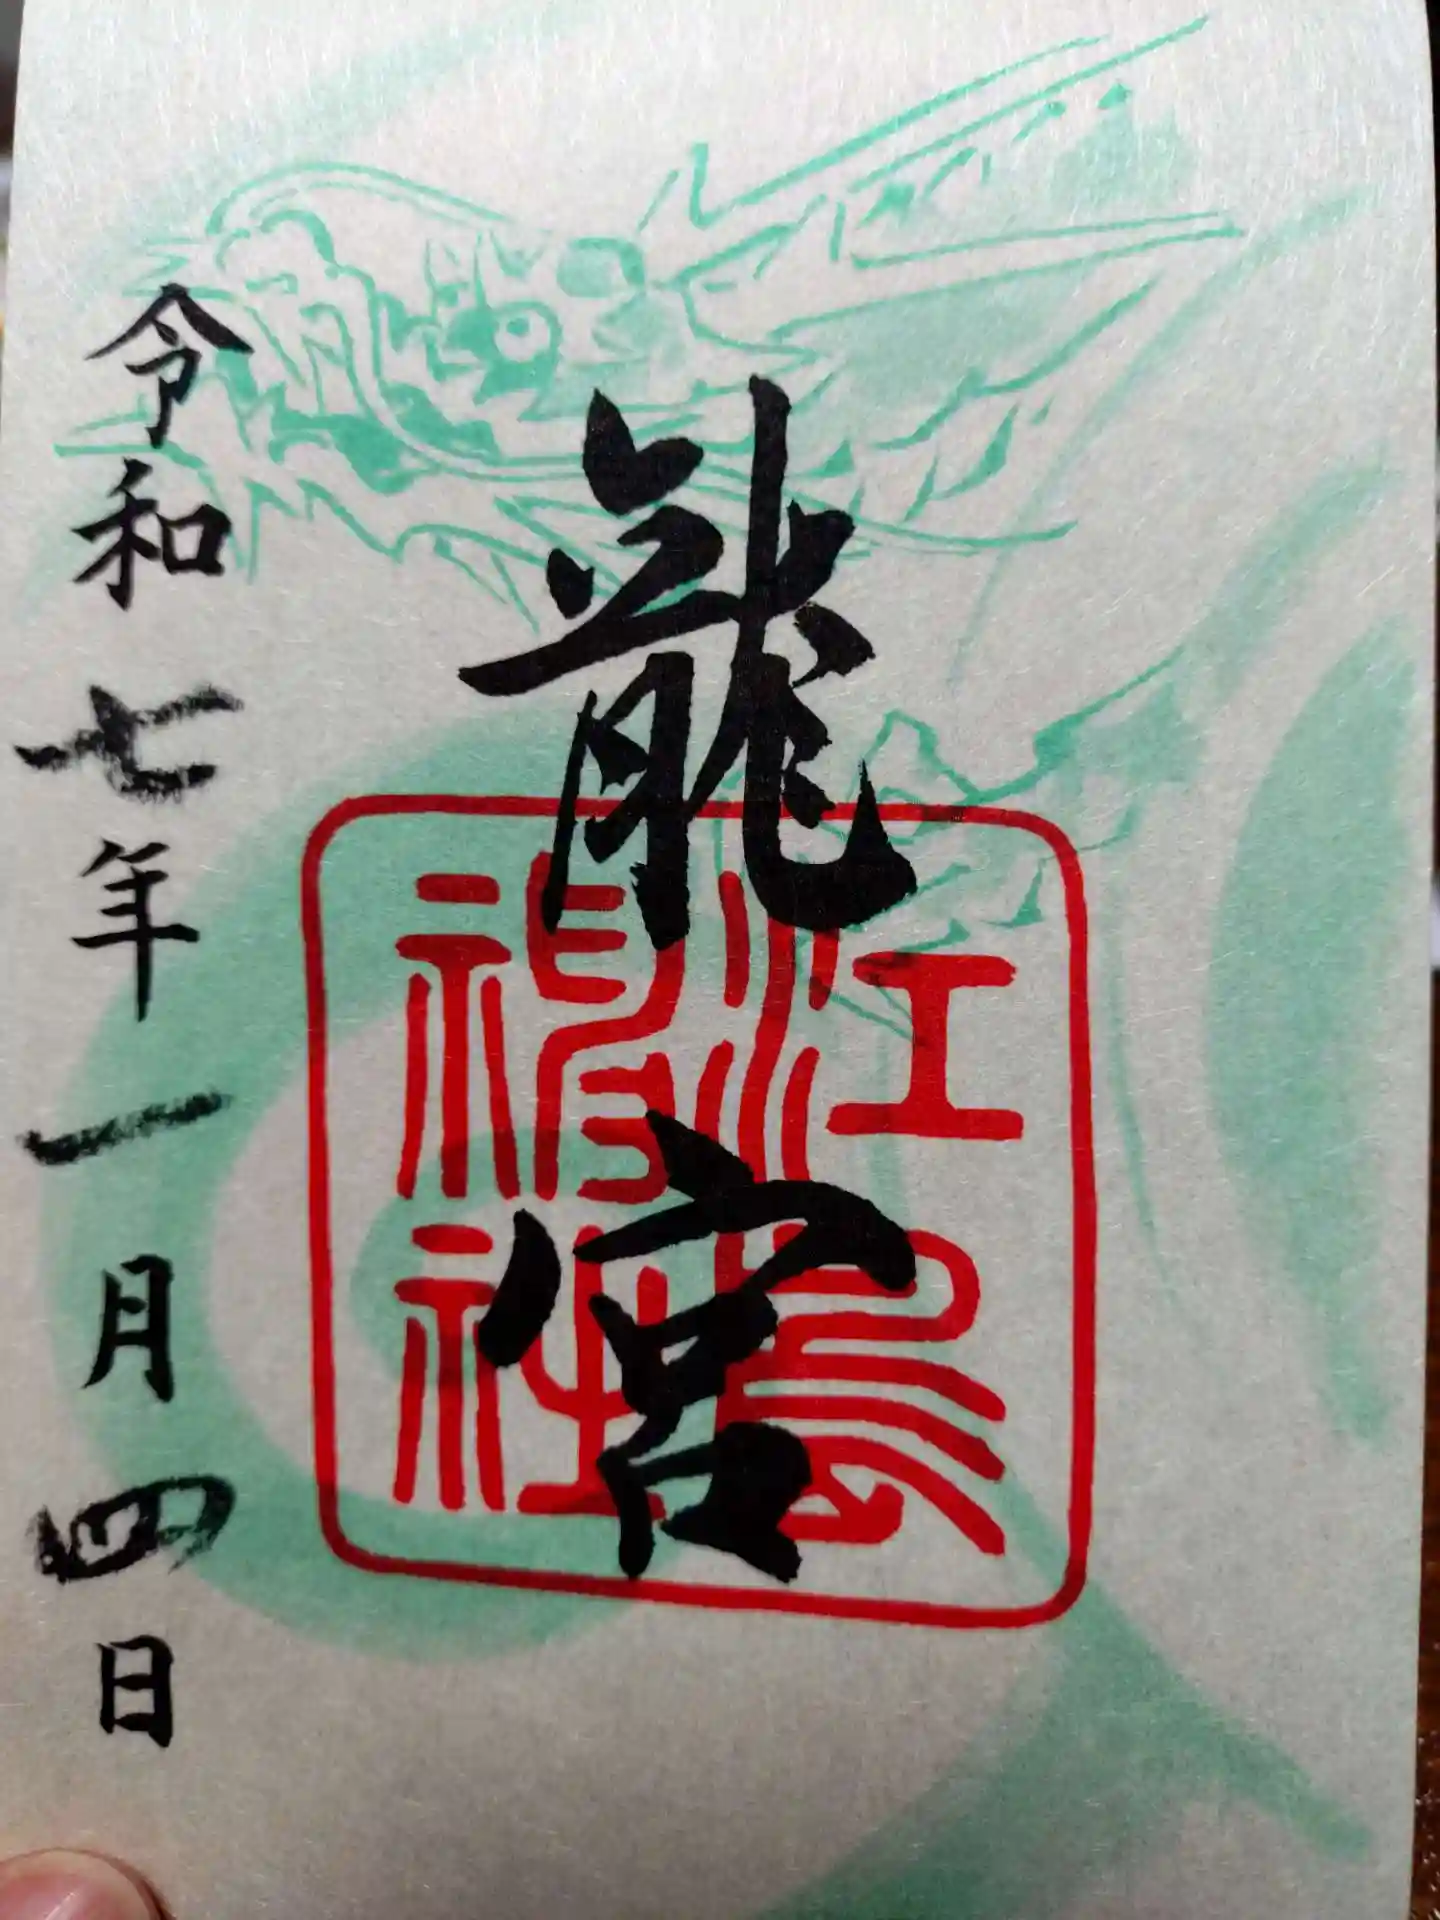 龍宮
江島神社
令和七年一月四日